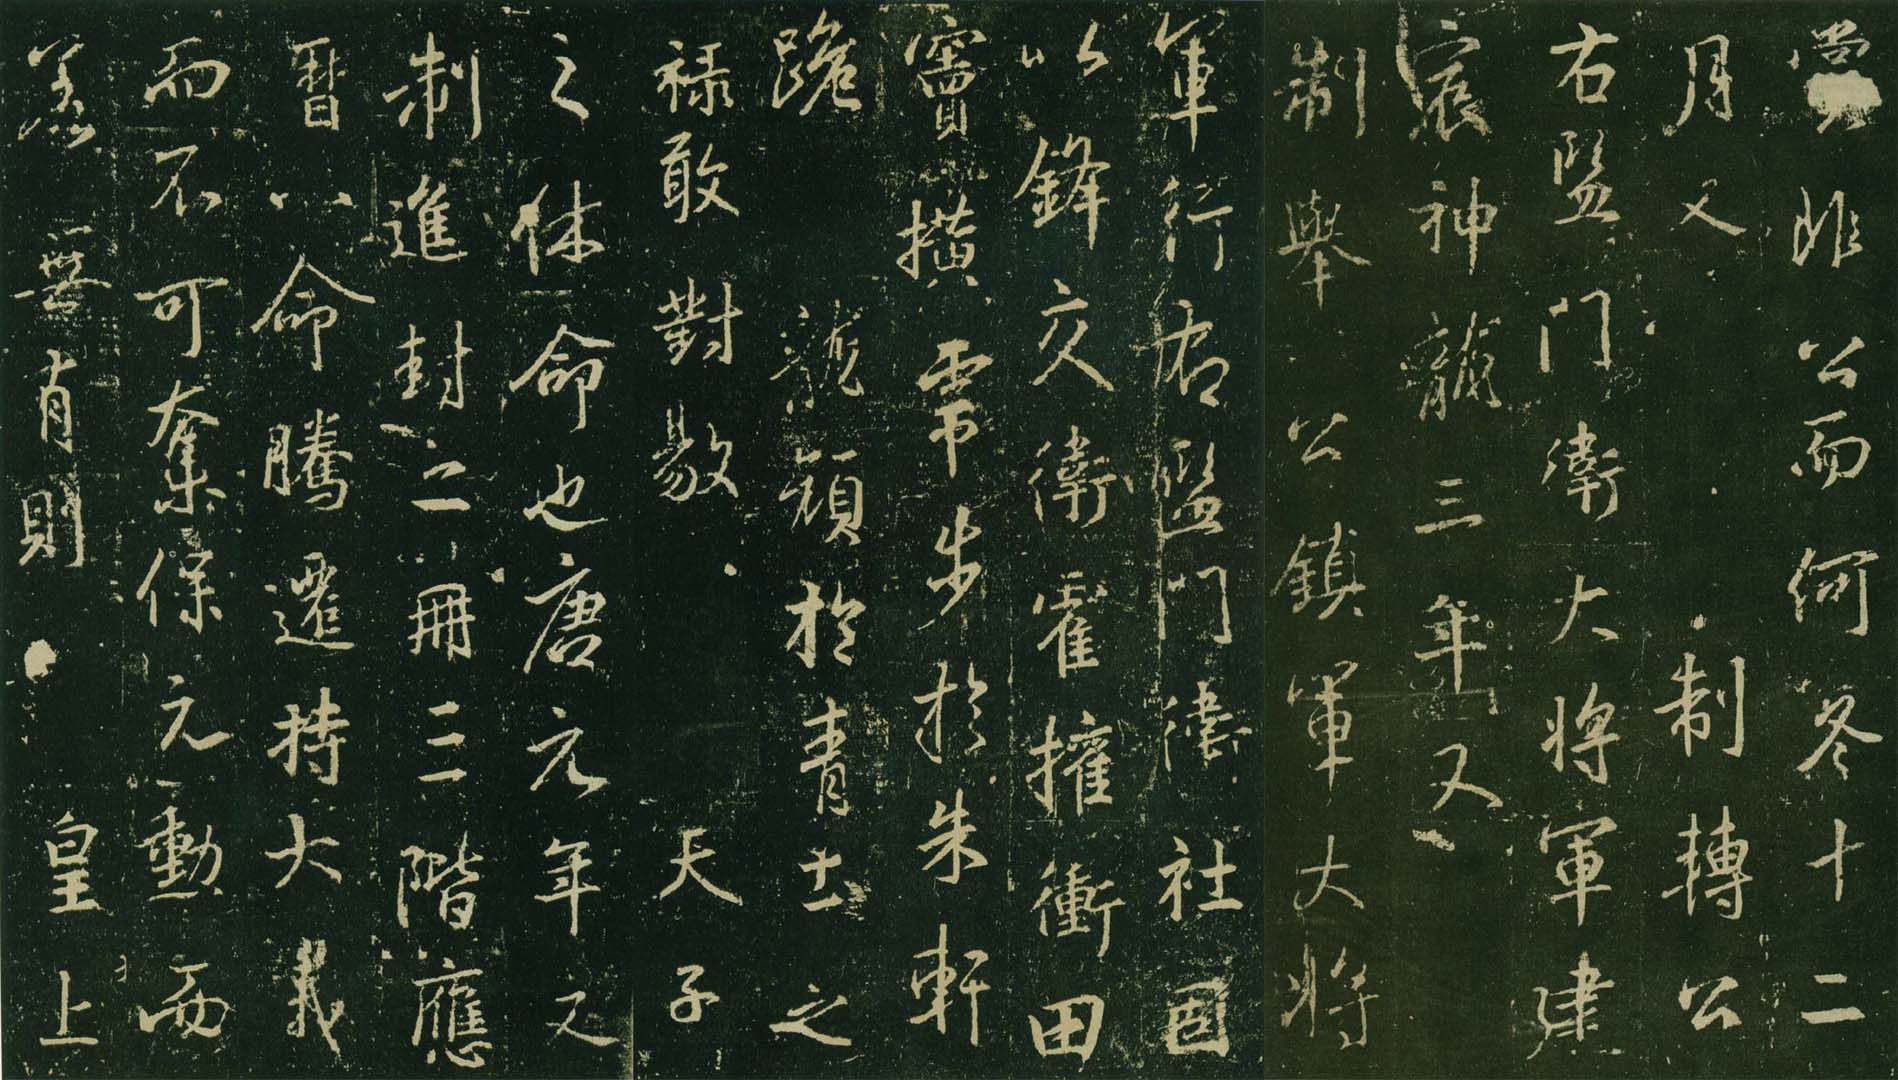 賞非公而何冬十二
月又制轉公
右監門衛大將軍建
宸神龍三年又
制舉公鎮軍大將
軍行右監門衛社固
以鋒交衛霍擁衝田
竇橫帶步於朱軒
跪龍顏於青土之
祿敢對敭天子
之休命也唐元年又
制進封二冊三階應
曆以命騰遷持大義
而不可奪保元勳而
無有則皇上